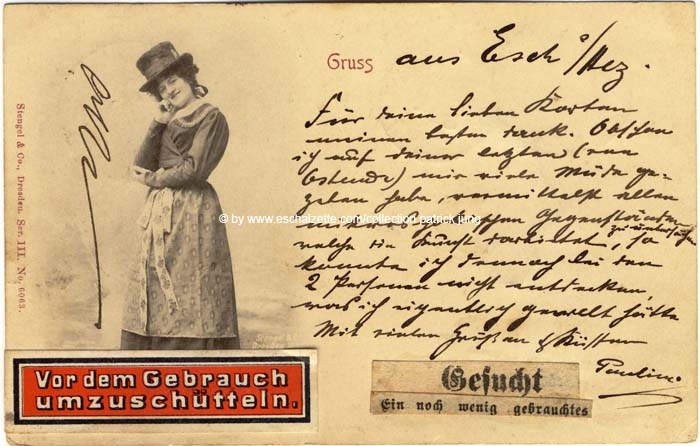 Gruss aus Esch a/Alz.
Für deine lieben Karten
meinen besten Dank. Obschon
ich auf deiner letzten (von
Ostende) mir viele Mühe ge-
geben habe, vermittelst allen
mikroskopischen Gegenständen
welche die Kunst darbietet, zu untersuchen, so
konnte ich dennoch bei den
2 Personen nicht entdecken,
was ich eigentlich gewollt hätte
Mit vielen Grüßen & Küssen
Pauline
Stengel & Co., Dresden. Ser. III. No. 6063.
© by www.eschalzette.com/collection patrick jung
Vor dem Gebrauch
umzuschütteln.
Gesucht
Ein noch wenig gebrauchtes